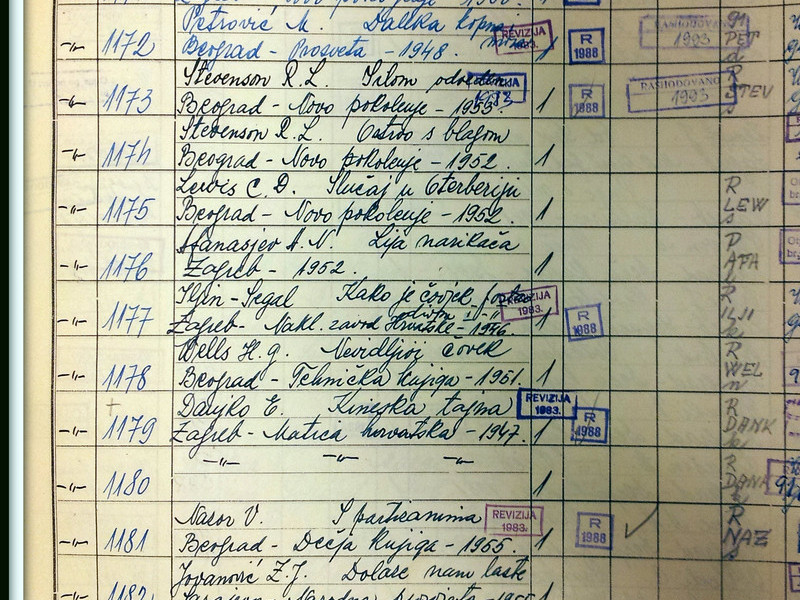 Petrović M. Daleka kopna
REVIZIJA 1983.
RASHODOVANO 1993
-"- 1172 Beograd - Prosveta - 1948. R 1988 PET
Stevenson R. L. Silom
REVIZIJA
RASHODOVANO 1993
-"- 1173 Beograd - Novo pokolenje - 1955. 1 R 1988 R STEV s
Stevenson R. L. Ostrvo s blagom
-"- 1174 Beograd - Novo pokolenje - 1952. 1
Lewis C. D. Slučaj u Oterberiji R
-"- 1175 Beograd - Novo pokolenje - 1952. 1 LEW s
Afanasjev A. N. Lija narikača
-"- 1176 Zagreb - 1952. 1 AFA
Iljin - Segal Kako je čovjek
REVIZIJA 1983.
-"- 1177 Zagreb - Nakl. zavod Hrvatske - 1946. 1 R 1988 R
Wells H. G. Nevidljivi čovek R
-"- 1178 Beograd - Tehnička knjiga - 1951. 1 WEL n
Danjko E. Kineska tajna
REVIZIJA 1983.
-"- 1179 Zagreb - Matica hrvatska - 1947. 1 R 1988 R DANK k
-"- -"- -"-
-"- 1180 1 R DANK
Nazor V. S partizanima
REVIZIJA 1983.
-"- 1181 Beograd - Dečja knjiga - 1955. 1 R 1988 R NAZ s
Jovanović Z. J. Dolaze nam laste
1182 Sarajevo - Narodna prosvjeta